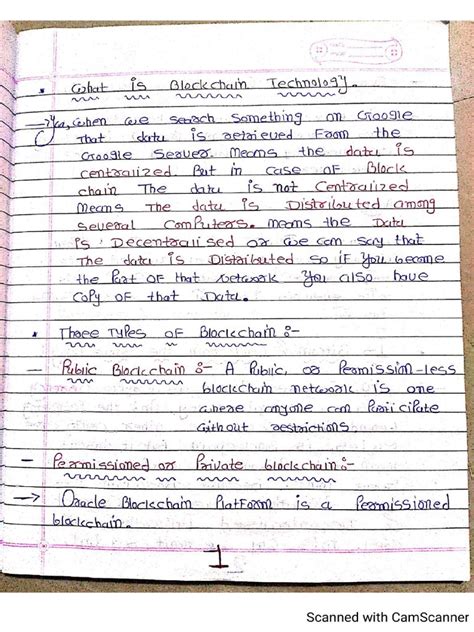 • What is Blockchain Technology.
→ Yea, when we search something on Google
That data is retrieved From the
Google Server. Means the data is
centralized. But in case of Block
chain The data is not Centralized
Means The data is Distributed among
Several Computers. means the Data
is Decentralised or we can say that
The data is Distributed so if you become
the Part of that network you also have
Copy of that Data.
• Three Types of Blockchain :-
— Public Blockchain :- A Public, or Permission-less
blockchain network is one
where anyone can Participate
without restrictions
— Permissioned or Private blockchain :-
→ Oracle Blockchain Platform is a Permissioned
blockchain.
1
Scanned with CamScanner